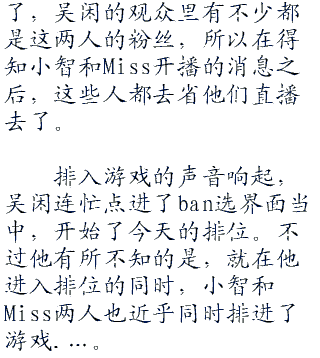 了，吴闲的观众里有不少都
是这两人的粉丝，所以在得
知小智和Miss开播的消息之
后，这些人都去省他们直播
去了。
排入游戏的声音响起，
吴闲连忙点进了ban选界面当
中，开始了今天的排位。不
过他有所不知的是，就在他
进入排位的同时，小智和
Miss两人也近乎同时排进了
游戏....。